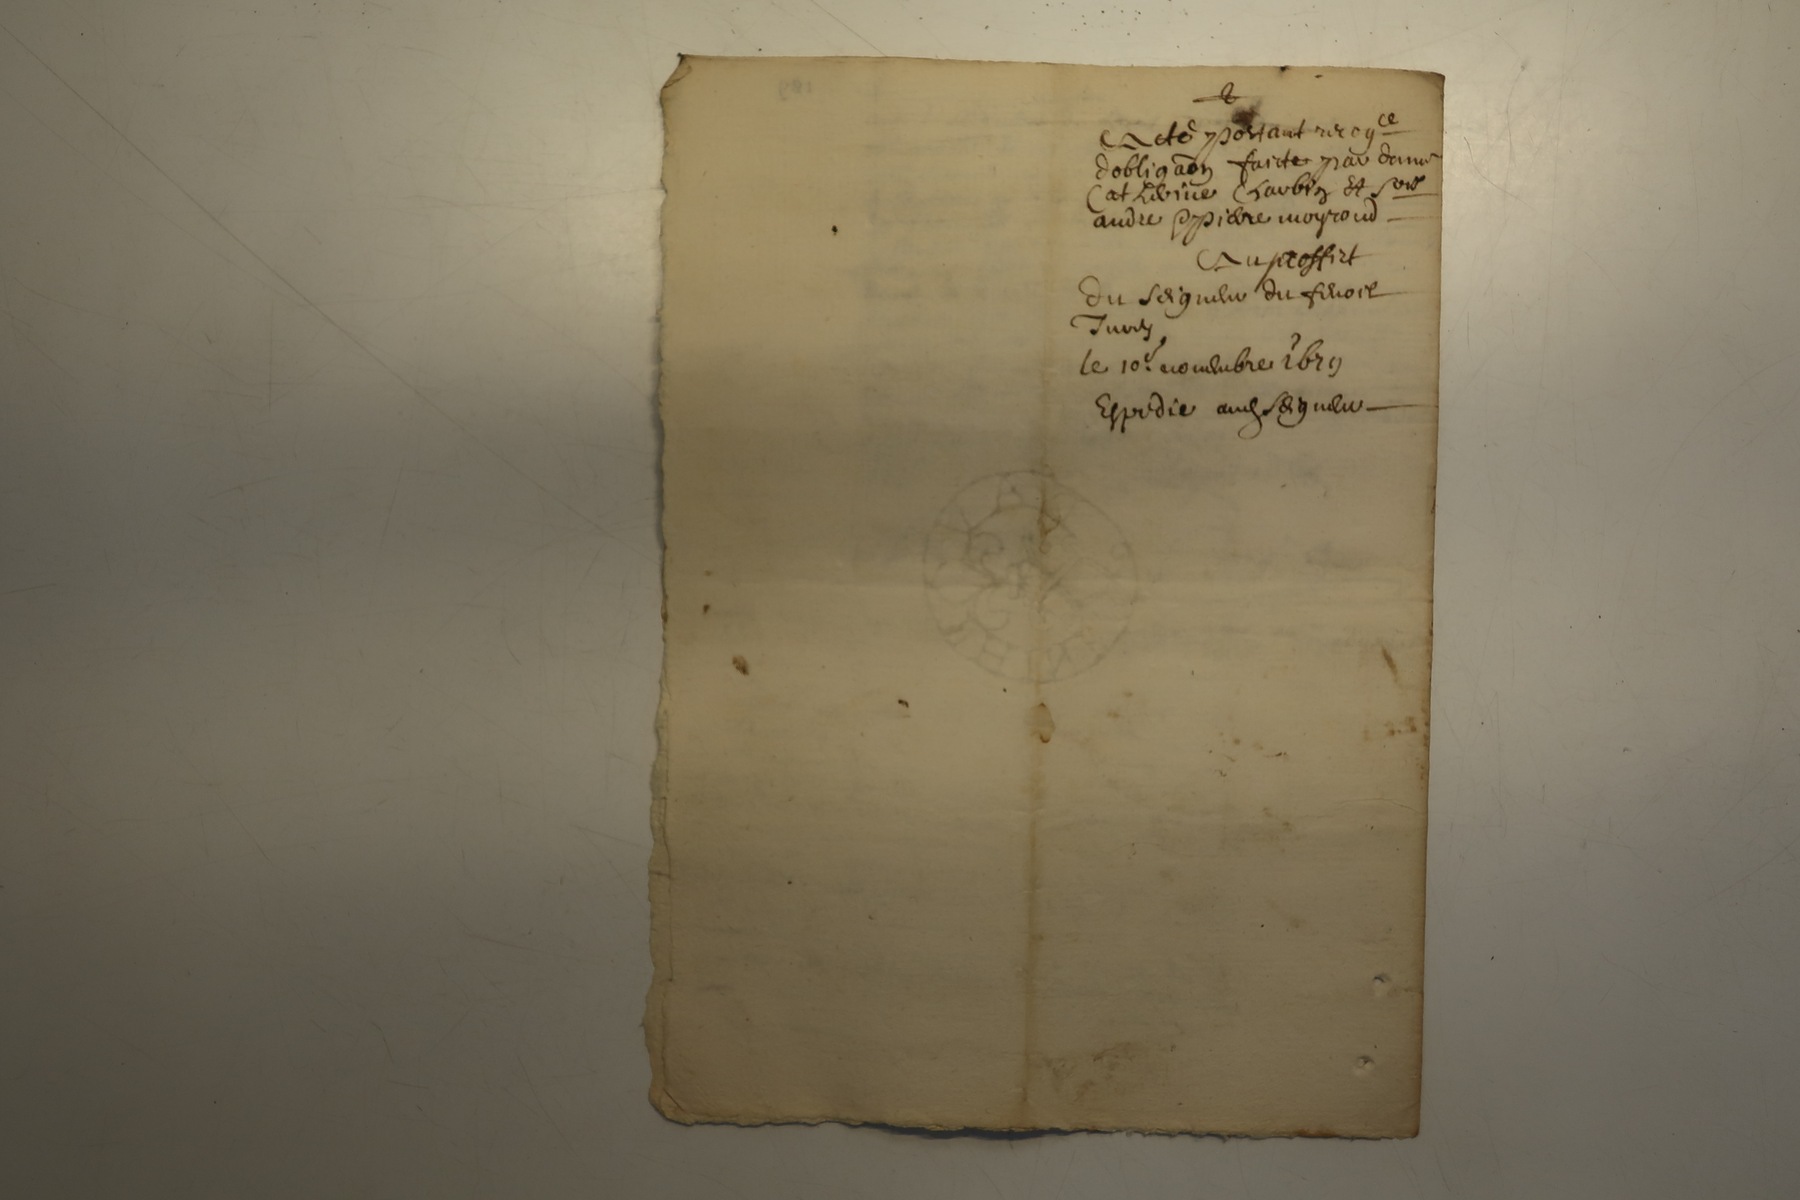 Acte portant recog^ce
dobligaon faicte par dame
Catherine Charbin et s^rs
andre & pierre moyroud
Au proffict
Du Seigneur du fenoil
Turey
le 10^e nouembre 1629
Expedie aud Seigneur